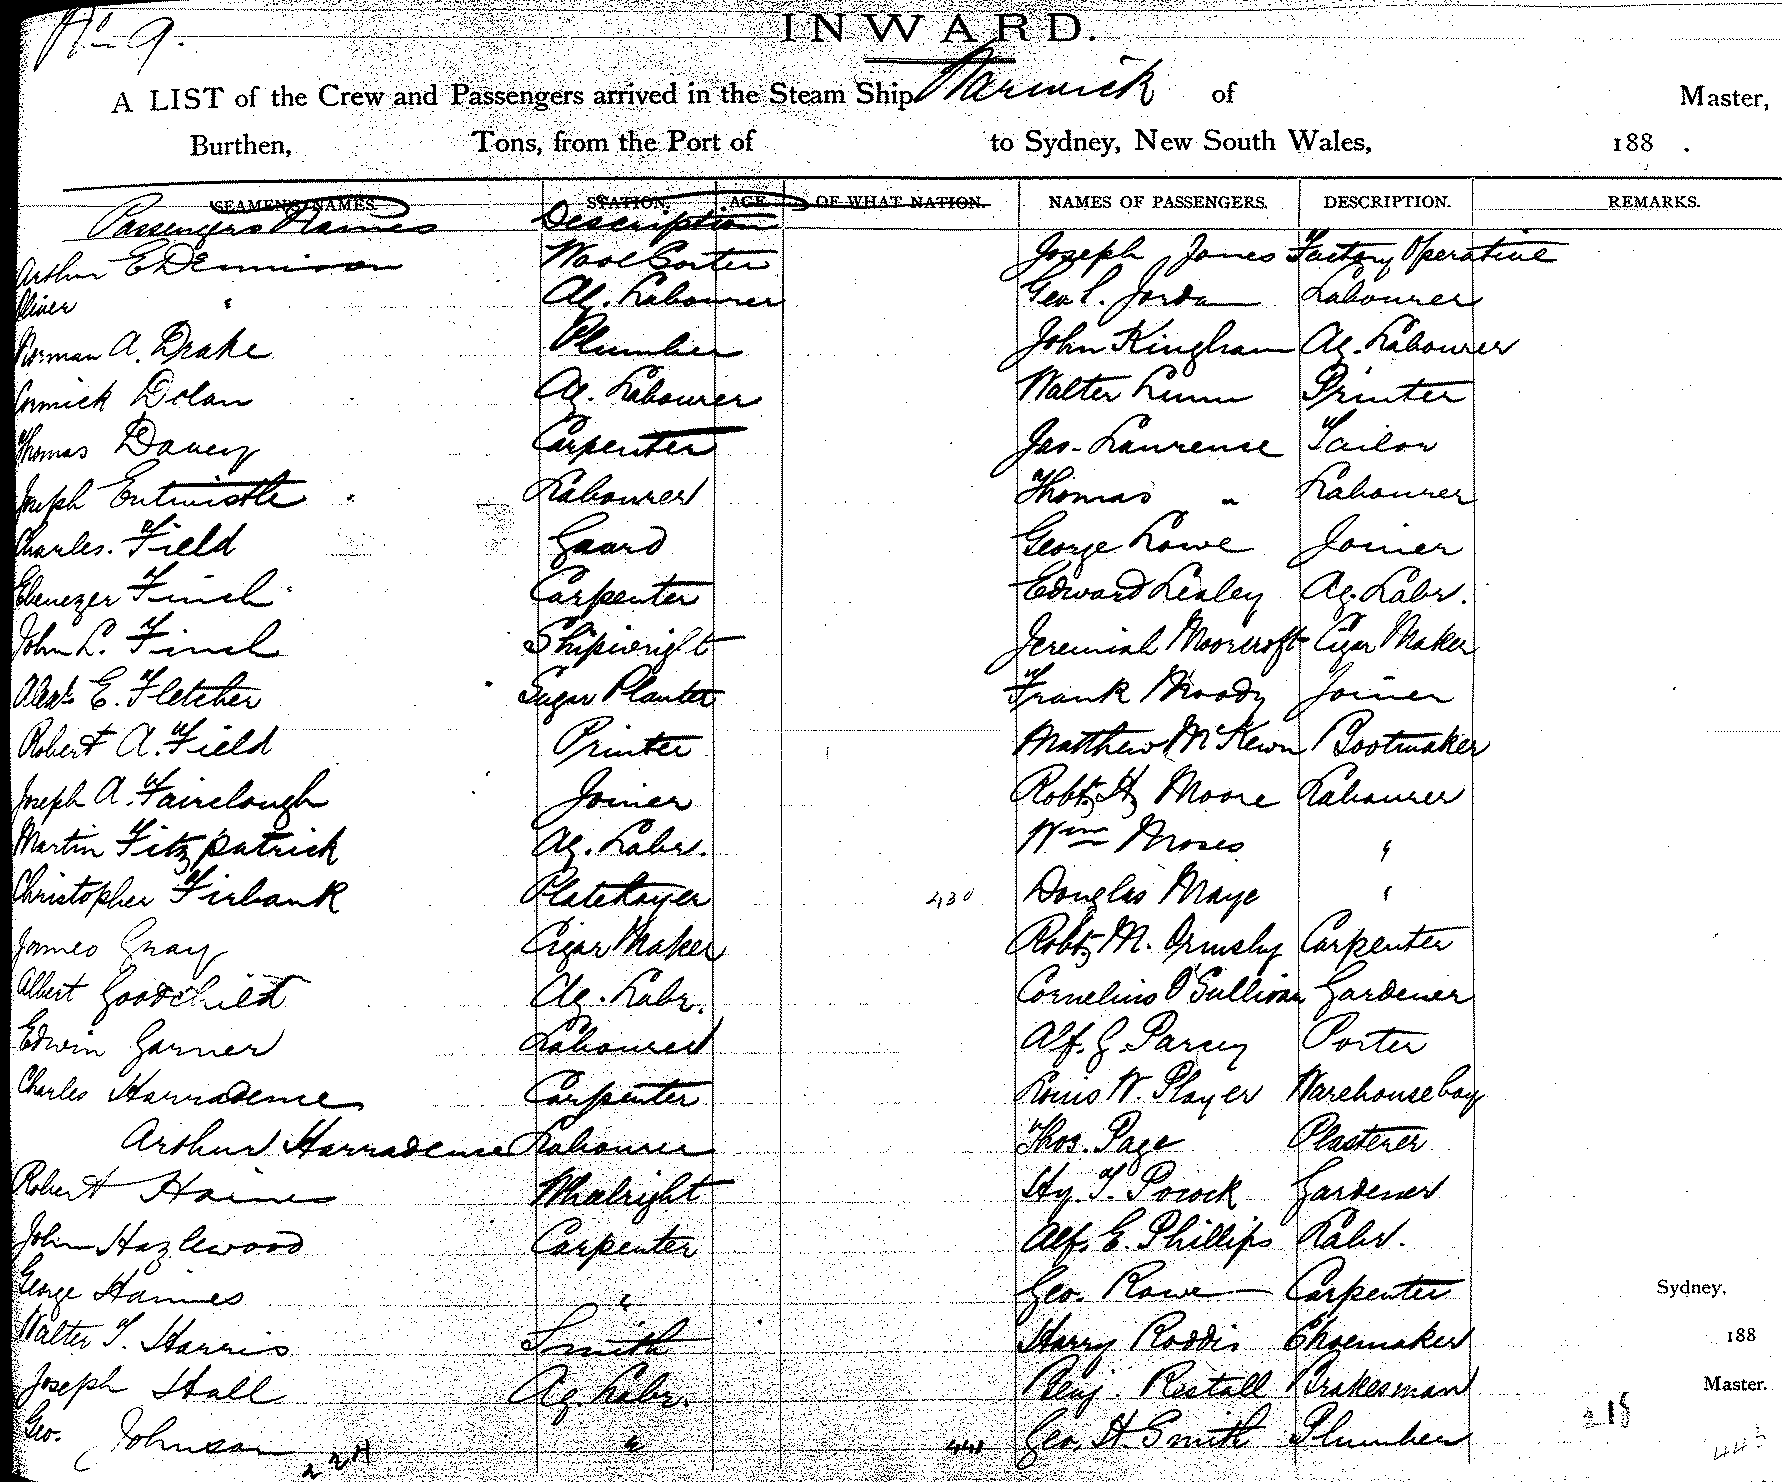 No 9.
INWARD.
A LIST of the Crew and Passengers arrived in the Steam Ship Warwick of Master,
Burthen, Tons, from the Port of to Sydney, New South Wales, 188 .
SEAMEN'S NAMES. STATION. AGE. OF WHAT NATION. NAMES OF PASSENGERS. DESCRIPTION. REMARKS.
Passengers Names Description
Arthur E Dennison Wool Sorter Joseph Jones Factory Operative
Oliver " Ag. Labourer Geo L. Jordan Labourer
Norman A. Drake Plumber John Kingham Ag. Labourer
Cormick Dolan Ag. Labourer Walter Lunn Printer
Thomas Davey Carpenter Jas. Laurense Tailor
Joseph Entwistle Labourer Thomas " Labourer
Charles. Field Guard George Lowe Joiner
Ebenezer Finch Carpenter Edward Lealey Ag. Labr.
John L. Finch Shipwright Jeremiah Moorcroft Cigar Maker
Alexr E. Fletcher Sugar Planter Frank Moody Joiner
Robert A. Field Printer Matthew McKewn Bootmaker
Joseph A. Fairclough Joiner Robt. Hy Moore Labourer
Martin Fitzpatrick Ag. Labr. Wm Moses "
Christopher Firbank Platelayer 430 Douglas Maye "
James Gray Cigar Maker Robt. M. Ormsby Carpenter
Albert Goodchild Ag. Labr. Cornelius O'Sullivan Gardener
Edwin Garner Labourer Alf. G. Parcey Porter
Charles Harradence Carpenter Louis W. Player Warehouseboy
Arthur Harradence Labourer Thos. Page Plasterer
Robert Haines Whelright Hy. T. Pocock Gardener
John Hazlewood Carpenter Alf. E. Phillips Labr.
George Haines " Geo. Rowe Carpenter Sydney,
Walter T. Harris Smith Harry Roddis Shoemaker 188
Joseph Hall Ag. Labr. Benj. Restall Brakesman Master.
Geo. Johnson " Geo. H. Smith Plumber